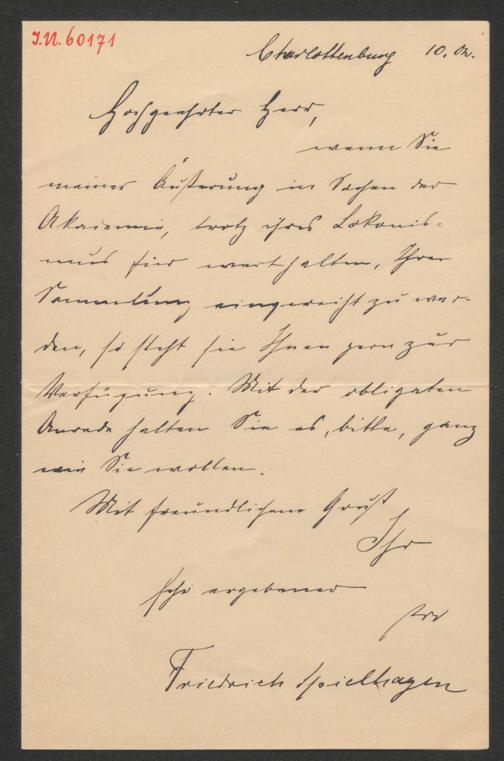 I.N. 60171
Charlottenburg 10. Ok.
Hochgeehrter Herr,
wenn Sie
meiner Äußerung in Sachen der
Akademie, trotz ihres Lakonis-
mus für wert halten, Ihrer
Sammlung eingereiht zu wer-
den, so steht sie Ihnen gern zur
Verfügung. Mit der obligaten
Anrede halten Sie es, bitte, ganz
wie Sie wollen.
Mit freundlichem Gruß
Ihr
sehr ergebener
Friedrich Spielhagen